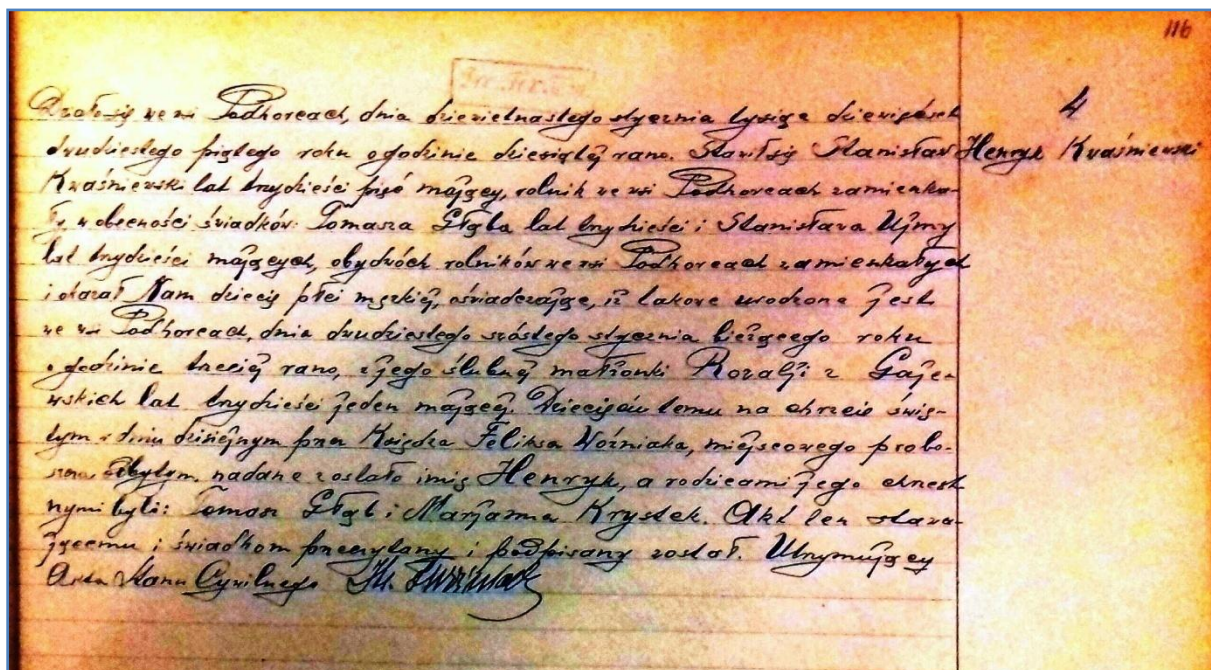 116
4
Henryk Kraśniewski
Działo się we wsi Podhorcach, dnia dziewietnastego stycznia tysiąc dziewięćset
dwudziestego piątego roku o godzinie dziesiątéj rano. Stawił się Stanisław
Kraśniewski lat trzydzieści pięć mający, rolnik we wsi Podhorcach zamieszka-
ły w obecności świadków: Tomasza Głąba lat trzydzieści i Stanisława Ujmy
lat trzydzieści mających, obydwóch rolników we wsi Podhorcach zamieszkałych
i okazał Nam dziecię płci męzkiéj, oświadczając, iż takowe urodzone jest
we wsi Podhorcach, dnia dwudziestego szóstego stycznia bieżącego roku
o godzinie trzeciéj rano, z jego ślubnéj małżonki Rozalji z Gaje-
wskich lat trzydzieści jeden mającéj. Dziecięciu temu na chrzcie świę-
tym w dniu dzisiejszym przez Księdza Feliksa Woźniaka, miejscowego probo-
szcza odbytym, nadane zostało imię Henryk, a rodzicami jego chrzest-
nymi byli: Tomasz Głąb i Marjanna Krystek. Akt ten stawa-
jącemu i świadkom przeczytany i podpisany został. Utrzymujący
Akta Stanu Cywilnego Ks. F. Woźniak